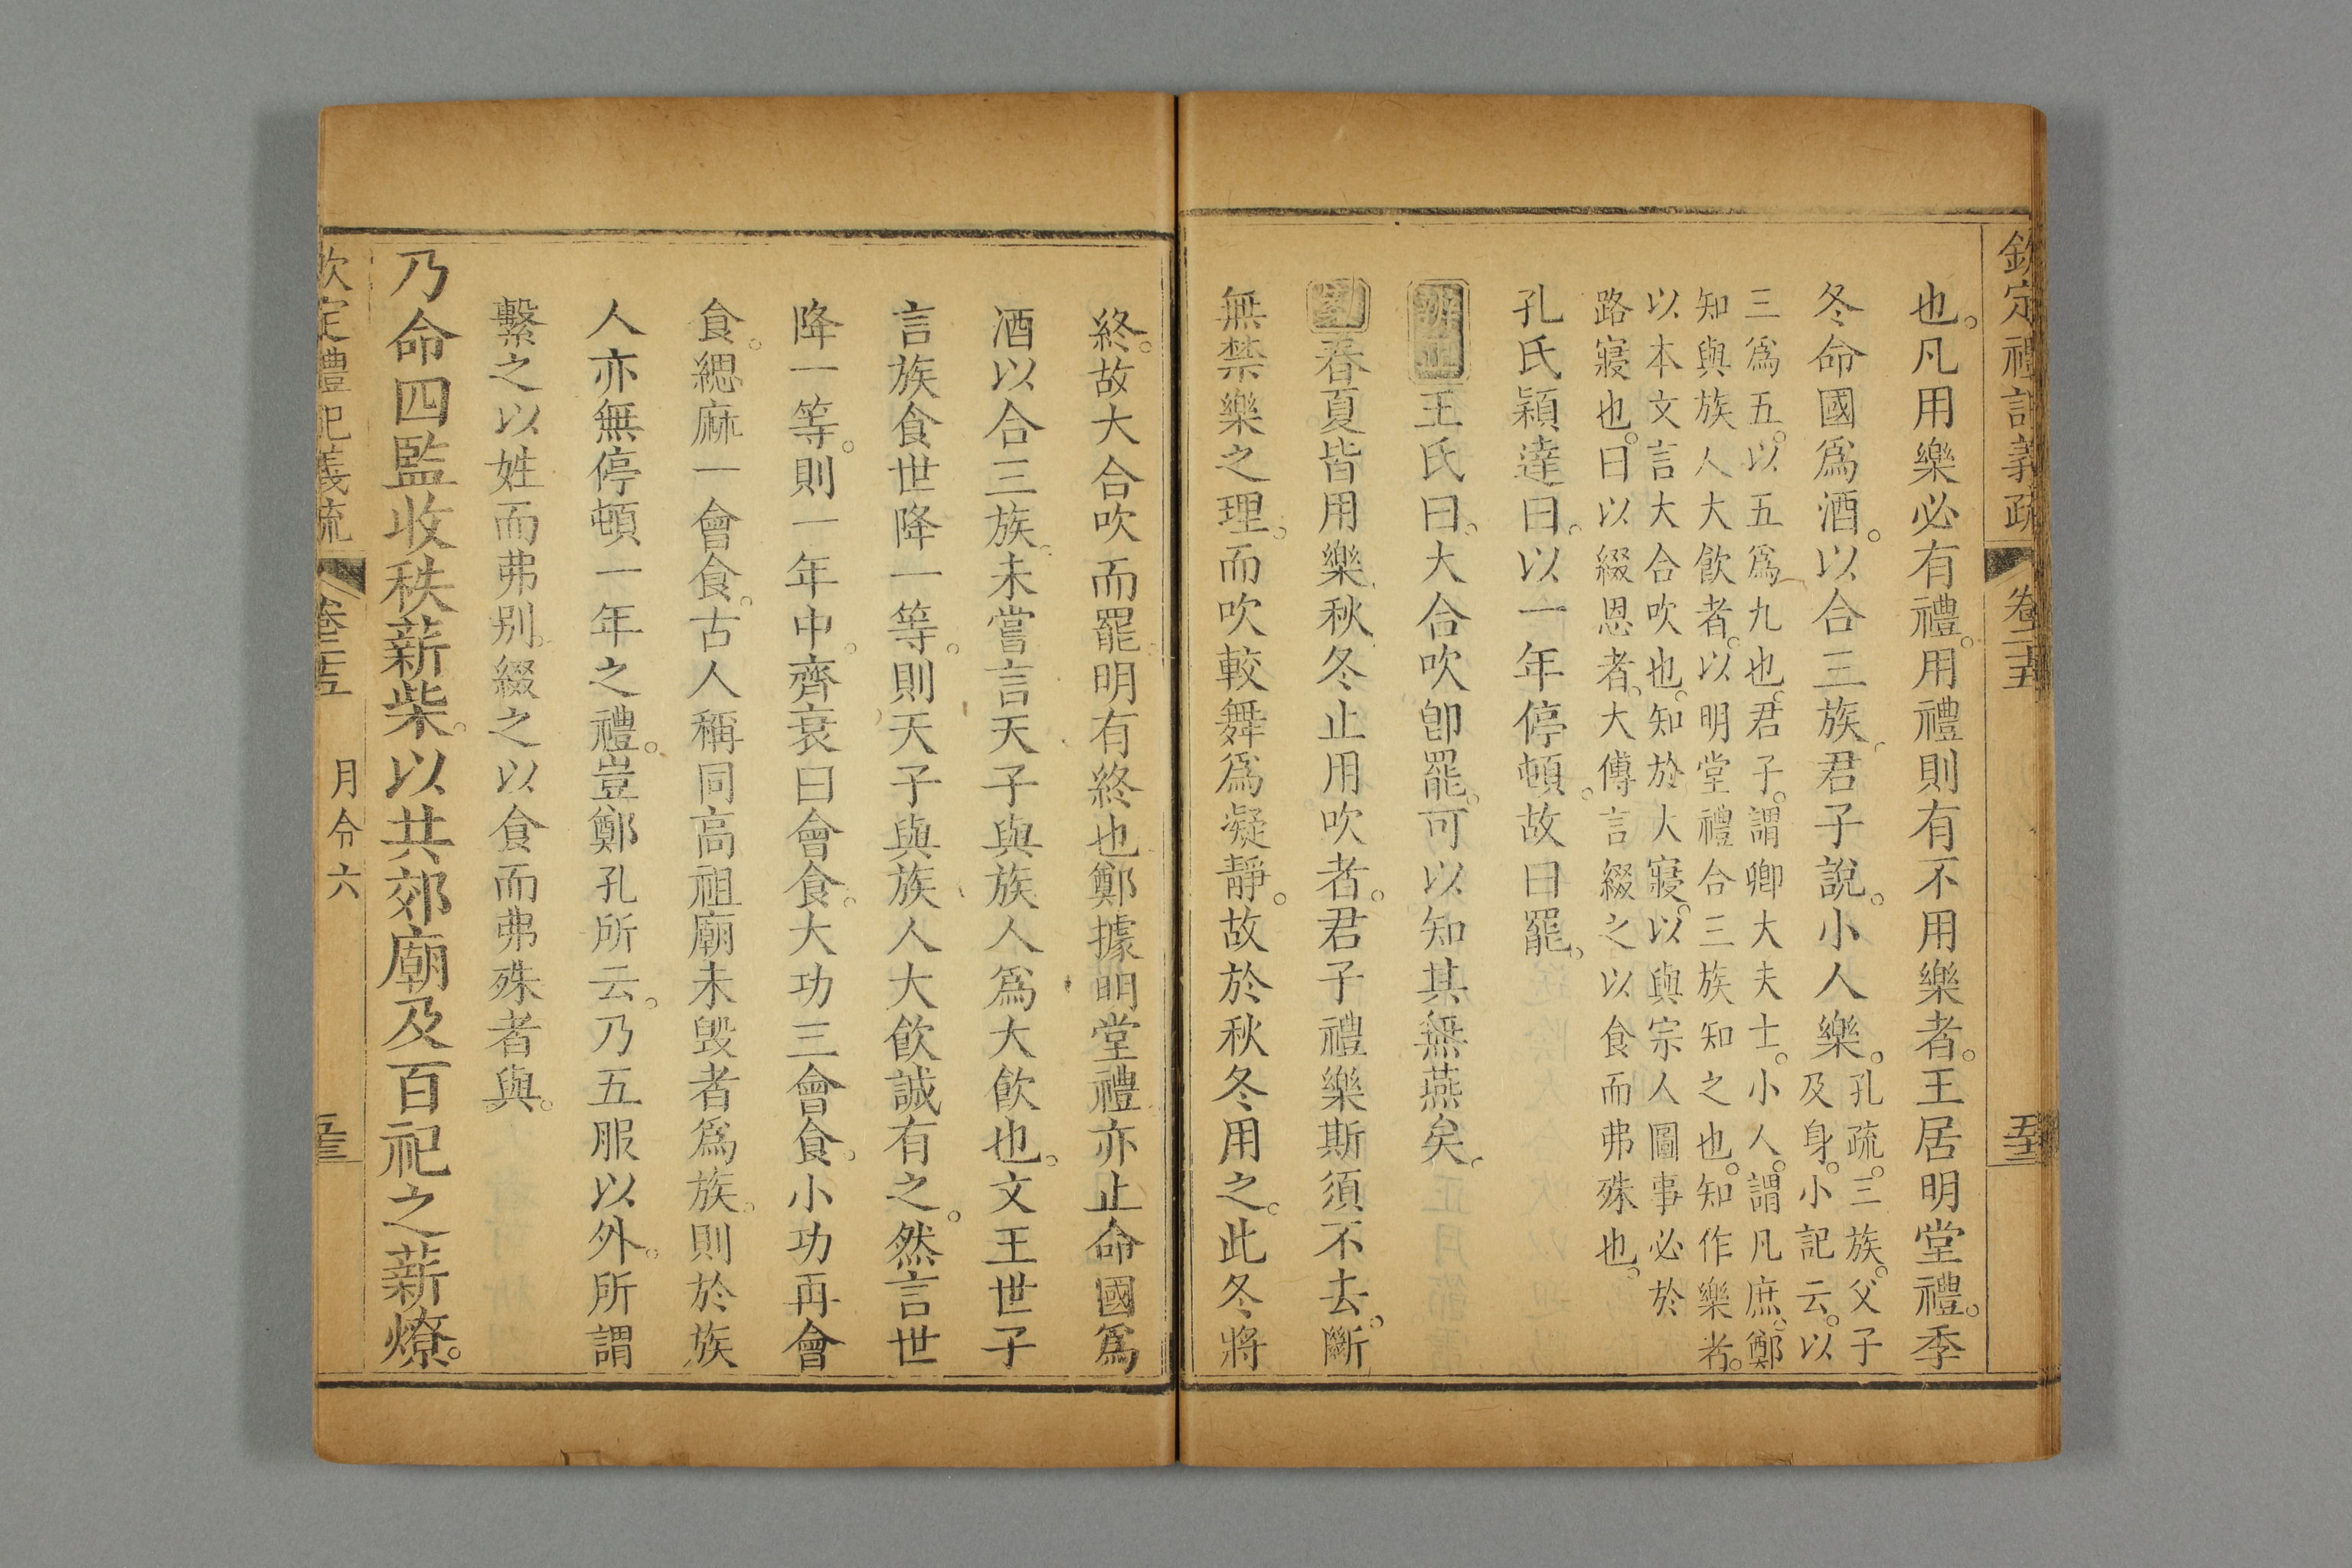 欽定禮記義疏 卷二十五 五十三
也。凡用樂必有禮。用禮則有不用樂者。王居明堂禮。季
冬命國爲酒。以合三族。君子說。小人樂。孔疏。三族。父子
及身。小記云。以
三爲五。以五爲九也。君子。謂卿大夫士。小人。謂凡庶。鄭
知與族人大飲者。以明堂禮合三族知之也。知作樂者。
以本文言大合吹也。知於大寢。以與宗人圖事必於
路寢也。曰以綴恩者。大傳言綴之以食而弗殊也。
孔氏穎達曰。以一年停頓。故曰罷。
辨正王氏曰。大合吹卽罷。可以知其無燕矣。
案春夏皆用樂。秋冬止用吹者。君子禮樂斯須不去。斷
無禁樂之理。而吹較舞爲凝靜。故於秋冬用之。此冬將
終。故大合吹而罷。明有終也鄭據明堂禮亦止命國爲
酒以合三族。未嘗言天子與族人爲大飲也。文王世子
言族食世降一等。則天子與族人大飲誠有之。然言世
降一等。則一年中。齊衰曰會食。大功三會食。小功再會
食。緦麻一會食。古人稱同高祖廟未毀者爲族。則於族
人亦無停頓一年之禮。豈鄭孔所云。乃五服以外。所謂
繫之以姓而弗别。綴之以食而弗殊者與。
乃命四監收秩薪柴。以共郊廟及百祀之薪燎。
欽定禮記義疏 卷二十五 月令六 五十三